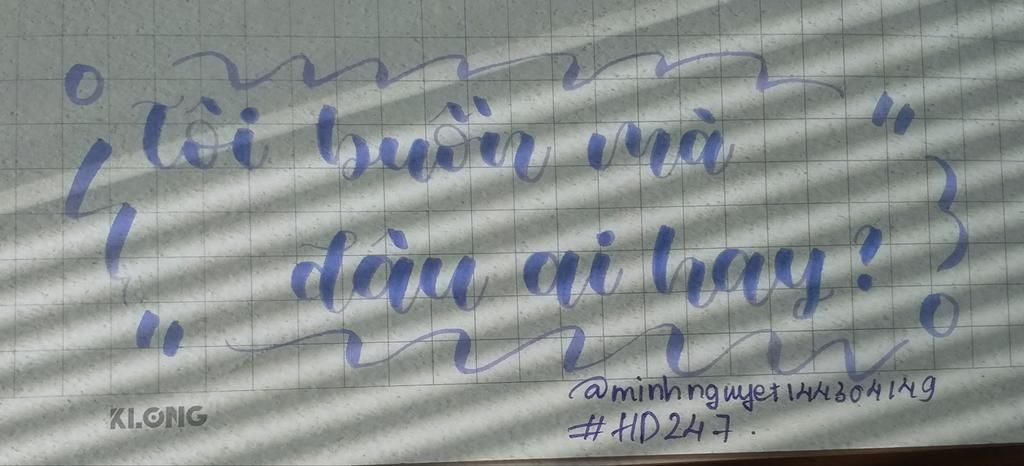 Tôi buồn mà
đâu ai hay?
KLONG
@minhnguyet144304149
#HD247.